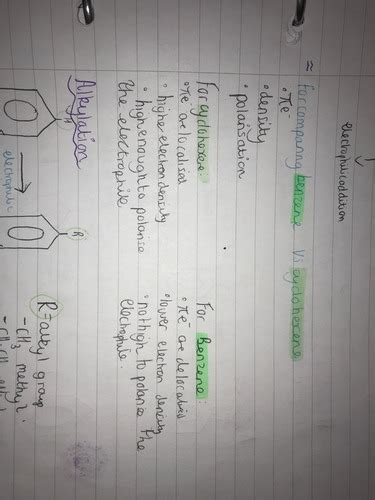 electrophilic addition
≈ For comparing benzene Vs cyclohexene:
• πe⁻
• density
• polarisation
For cyclohexene:
• πe⁻ are localised
• higher electron density
• high enough to polarise
the electrophile
For Benzene:
• πe⁻ are delocalised
• lower electron density
• not high to polarise the
electrophile.
Alkylation
H
electrophilic
R
R = alkyl group
- CH₃ methyl.